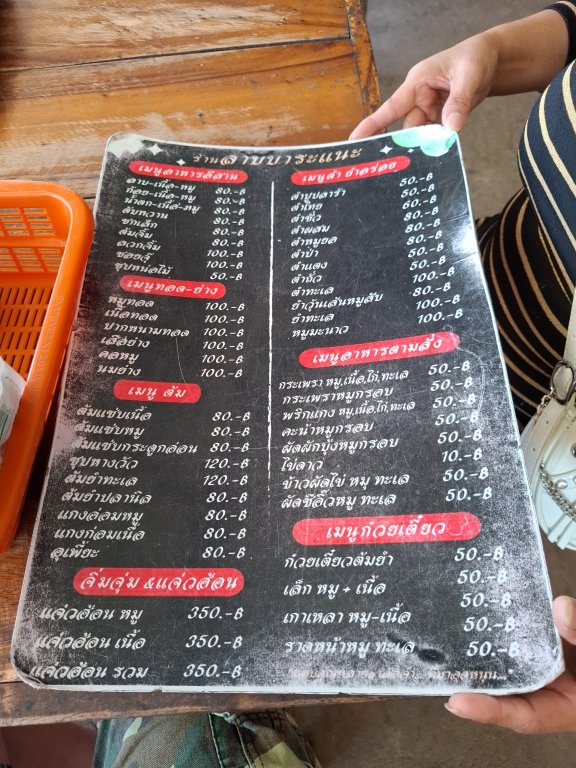 ร้าน ลาบบาระแนะ
เมนูอาหารอีสาน
ลาบ-เนื้อ-หมู 80.-฿
ก้อย-เนื้อ-หมู 80.-฿
น้ำตก-เนื้อ-หมู 80.-฿
ตับหวาน 80.-฿
ซกเล็ก 80.-฿
ต้มจิ้ม 80.-฿
ลวกจิ้ม 80.-฿
ซอยจุ๊ 100.-฿
ซุปหน่อไม้ 50.-฿
เมนูทอด-ย่าง
หมูทอด 100.-฿
เนื้อทอด 100.-฿
ปากหนามทอด 100.-฿
เสือย่าง 100.-฿
คอหมู 100.-฿
นมย่าง 100.-฿
เมนู ต้ม
ต้มแซ่บเนื้อ 80.-฿
ต้มแซ่บหมู 80.-฿
ต้มแซ่บกระดูกอ่อน 80.-฿
ซุบหางวัว 120.-฿
ต้มยำทะเล 120.-฿
ต้มยำปลานิล 80.-฿
แกงอ่อมหมู 80.-฿
แกงก้อมเนื้อ 80.-฿
อุเพี้ยะ 80.-฿
จิ้มจุ่ม &แจ่วฮ้อน
แจ่วฮ้อน หมู 350.-฿
แจ่วฮ้อน เนื้อ 350.-฿
แจ่วฮ้อน รวม 350.-฿
เมนูตำ ยำแซ่บ
ตำปูปลาร้า 50.-฿
ตำไทย 50.-฿
ตำซั่ว 60.-฿
ตำผสม 60.-฿
ตำหมูยอ 80.-฿
ตำป่า 80.-฿
ตำแตง 50.-฿
ตำถั่ว 50.-฿
ตำทะเล 100.-฿
ยำวุ้นเส้นหมูสับ 80.-฿
ยำทะเล 100.-฿
หมูมะนาว 100.-฿
เมนูอาหารตามสั่ง
กระเพรา หมู,เนื้อ,ไก่,ทะเล 50.-฿
กระเพราหมูกรอบ 50.-฿
พริกแกง หมู,เนื้อ,ไก่,ทะเล 50.-฿
คะน้าหมูกรอบ 50.-฿
ผัดผักบุ้งหมูกรอบ 50.-฿
ไข่ดาว 10.-฿
ข้าวผัดไข่ หมู ทะเล 50.-฿
ผัดซีอิ๊วหมู ทะเล 50.-฿
เมนูก๋วยเตี๋ยว
ก๋วยเตี๋ยวต้มยำ 50.-฿
เล็ก หมู + เนื้อ 50.-฿
เกาเหลา หมู-เนื้อ 50.-฿
ราดหน้าหมู ทะเล 50.-฿